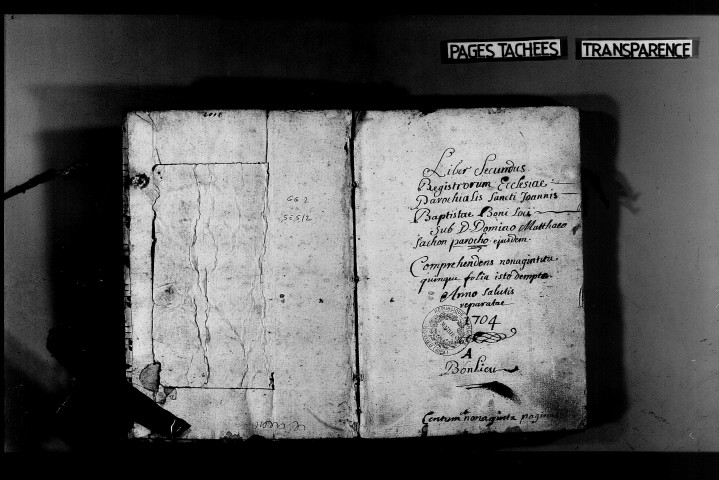 PAGES TACHEES TRANSPARENCE
GG 2
5E5/2
Liber Secundus
Registrorum Ecclesiae
Parochialis Sancti Joannis
Baptistae Boni Loci
sub D. Domino Matthaeo
Jachon parocho ejusdem.
Comprehendens nonaginta
quinque folia isto dempto
Anno Salutis
reparatae
1704
A
Bonlieu
Centum nonaginta pagin